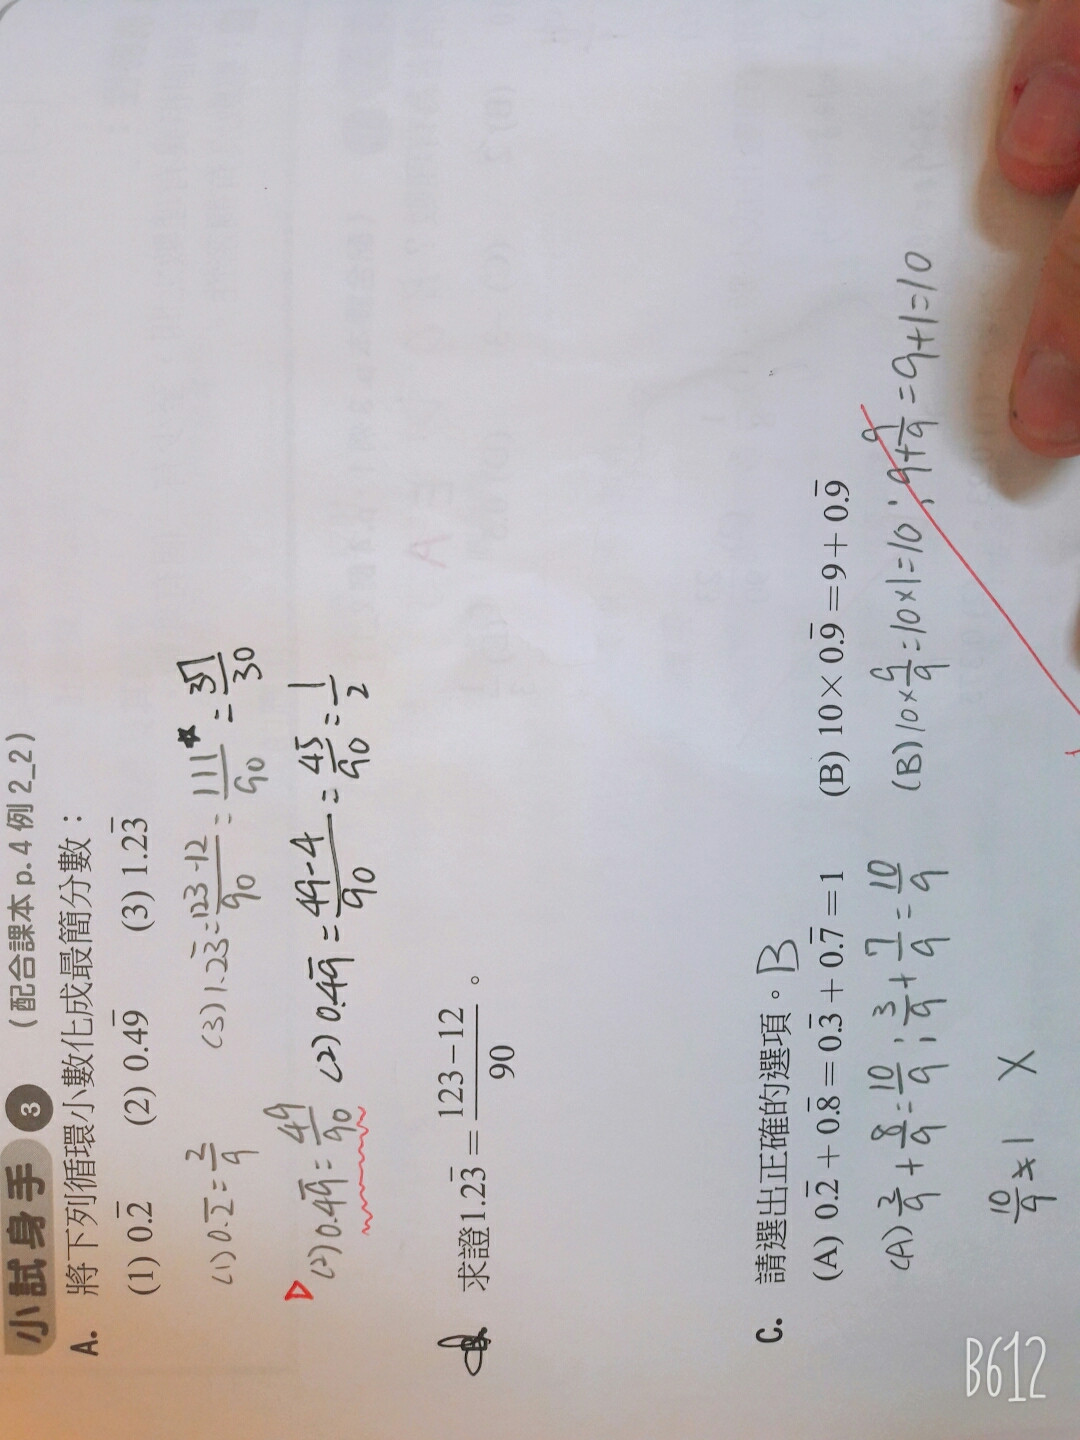 小試身手 3 （配合課本 p. 4 例 2_2）
A. 將下列循環小數化成最簡分數：
(1) 0.2̅ (2) 0.49̅ (3) 1.23̅
(1) 0.2̅ = 2/9 (3) 1.23̅ = (123-12)/90 = 111/90 = 37/30
(2) 0.49̅ = 49/90 (2) 0.49̅ = (49-4)/90 = 45/90 = 1/2
求證1.23̅ = (123−12)/90 。
C. 請選出正確的選項。B
(A) 0.2̅ + 0.8̅ = 0.3̅ + 0.7̅ = 1 (B) 10 × 0.9̅ = 9 + 0.9̅
(A) 2/9 + 8/9 = 10/9 ; 3/9 + 7/9 = 10/9 (B) 10×9/9 = 10×1 = 10 ; 9+9/9 = 9+1 = 10
10/9 ≠ 1 X
B612